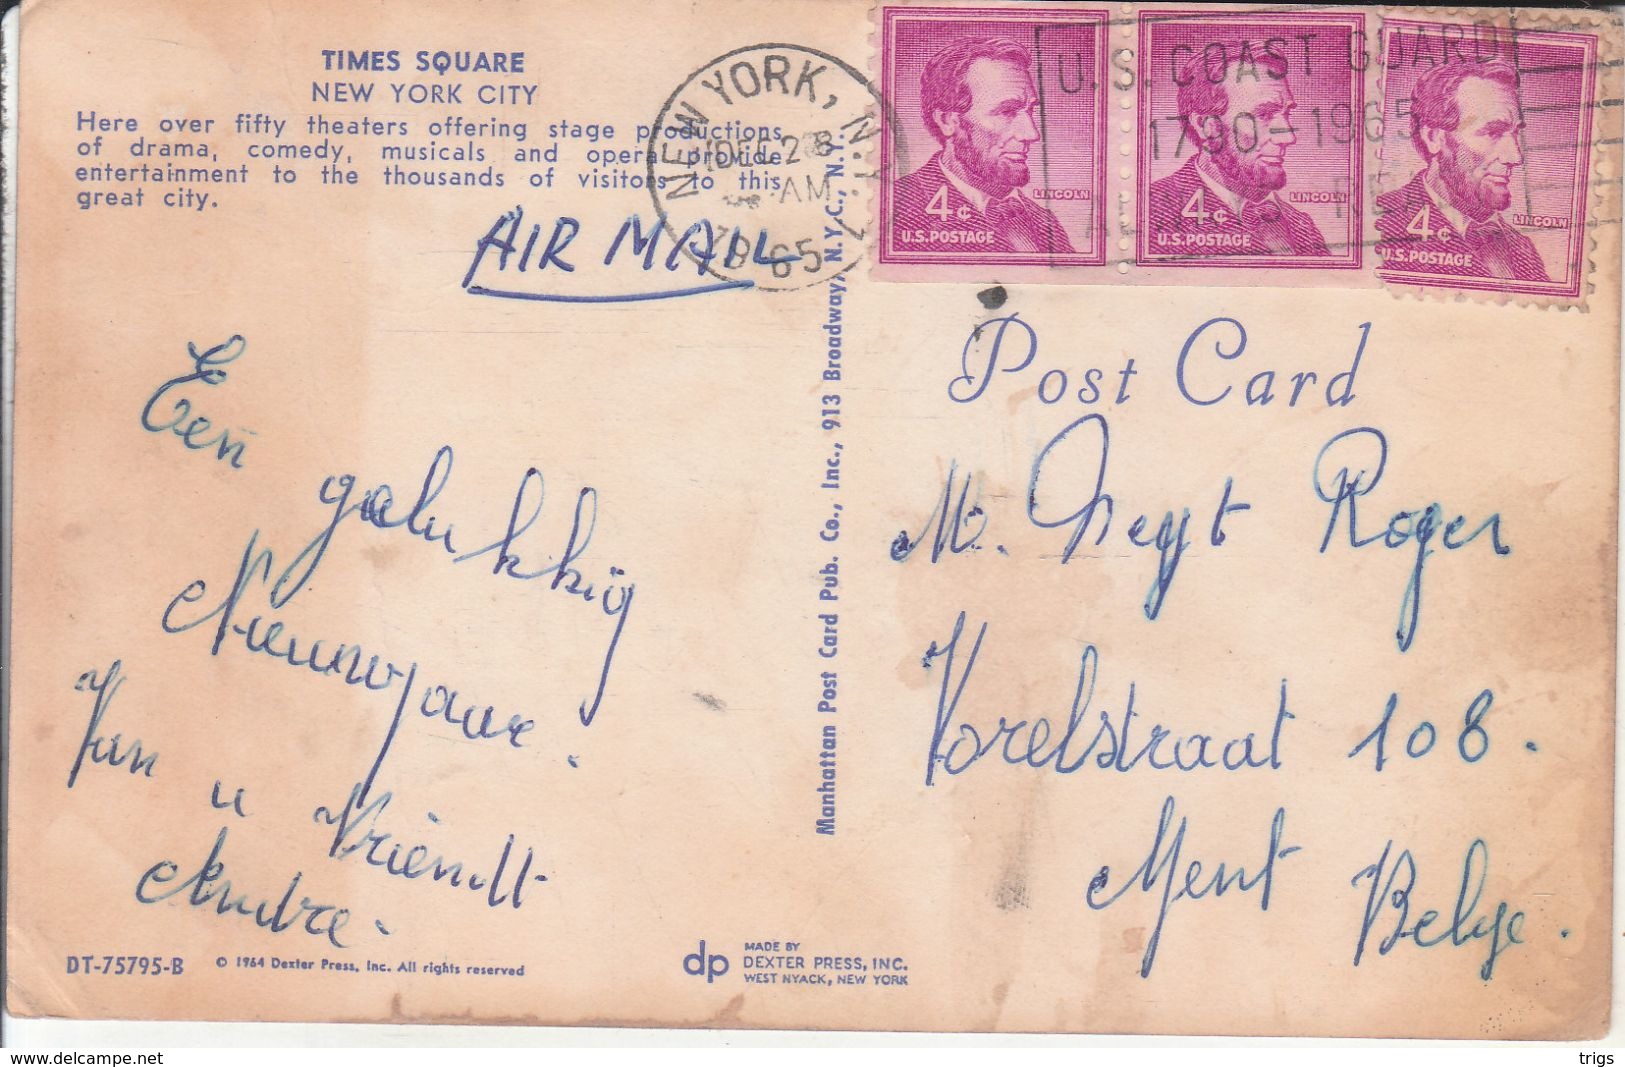 TIMES SQUARE
NEW YORK CITY
Here over fifty theaters offering stage productions
of drama, comedy, musicals and opera provide
entertainment to the thousands of visitors to this
great city.
AIR MAIL
NEW YORK, N.Y.
DEC 28
AM
1965
U.S. COAST GUARD
1790-1965
ALWAYS READY
LINCOLN
4¢
U.S. POSTAGE
LINCOLN
4¢
U.S. POSTAGE
LINCOLN
4¢
U.S. POSTAGE
Een
gelukkig
Nieuwjaar.
Van u Vriendt
Andre.
Manhattan Post Card Pub. Co., Inc., 913 Broadway, N.Y.C., N.Y.
Post Card
M. Neyt Roger
Vorelstraat 108.
Gent
Belge.
DT-75795-B
© 1964 Dexter Press, Inc. All rights reserved
dp
MADE BY
DEXTER PRESS, INC.
WEST NYACK, NEW YORK
https://www.delcampe.net
trigs